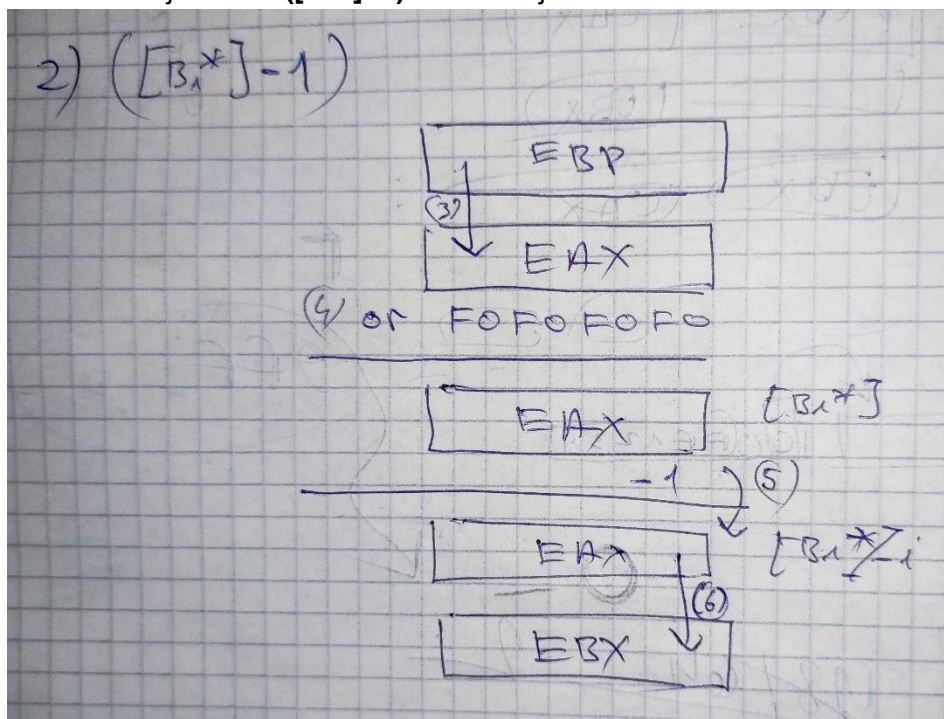 2) ([B1*]-1)
EBP
(3)
EAX
(4) or F0F0F0F0
EAX [B1*]
-1 (5)
EAX [B1*]-1
(6)
EBX